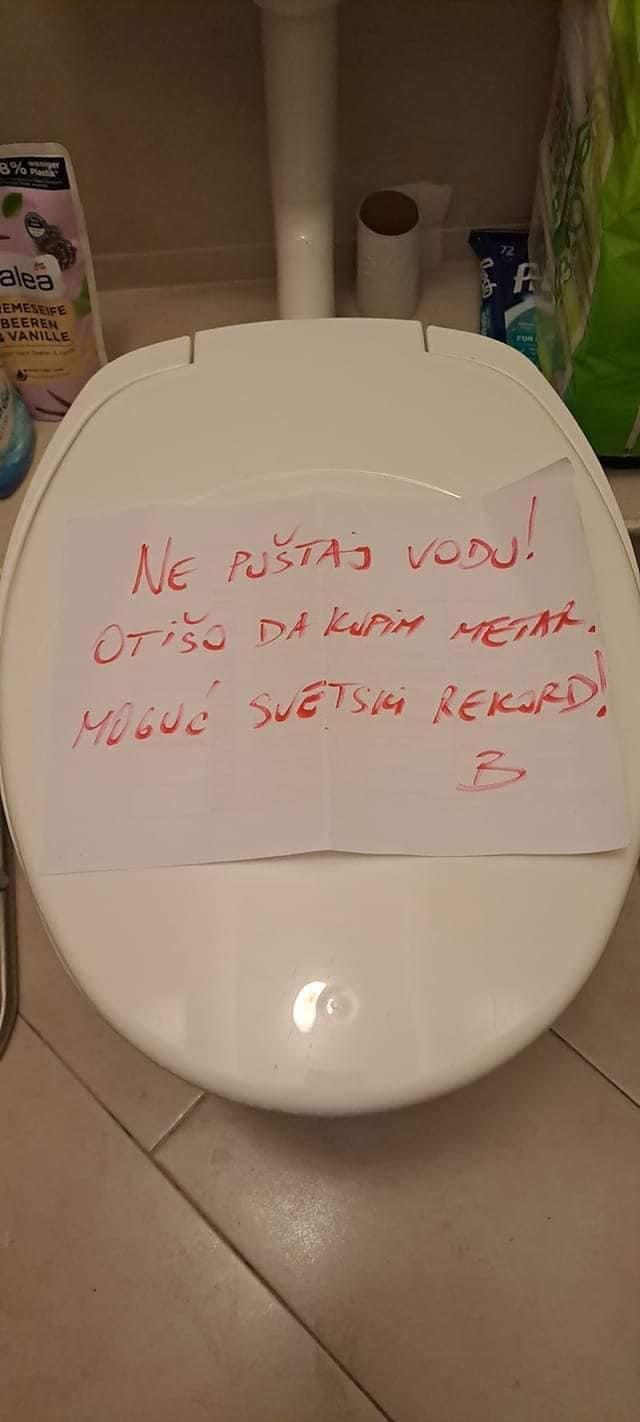 8% weniger
Plastik*
alea
REMESEIFE
BEEREN
& VANILLE
72
FOR
NE PUŠTAJ VODU!
OTIŠO DA KUPIM METAR.
MOGUĆ SVETSKI REKORD!
B